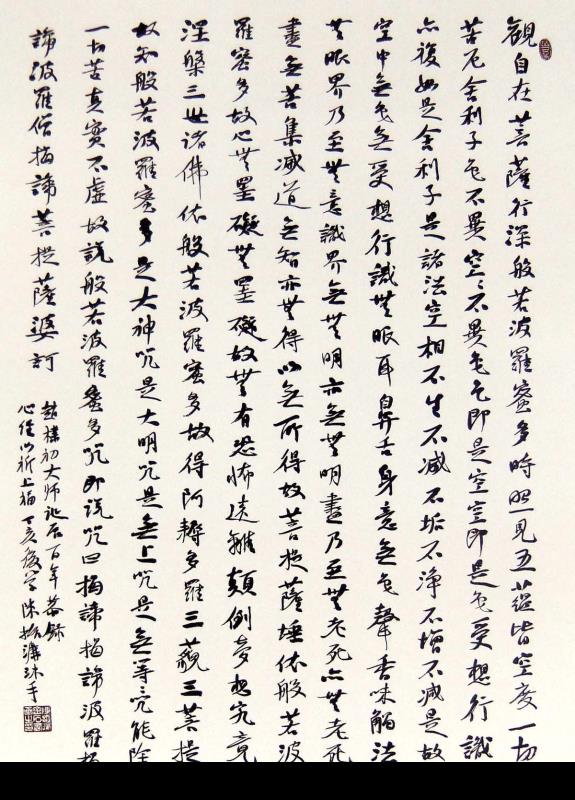 觀自在菩薩行深般若波羅蜜多時照見五蘊皆空度一切
苦厄舍利子色不異空〻不異色色即是空空即是色受想行識
亦復如是舍利子是諸法空相不生不滅不垢不淨不增不減是故
空中無色無受想行識無眼耳鼻舌身意無色聲香味觸法
無眼界乃至無意識界無無明亦無無明盡乃至無老死亦無老死
盡無苦集滅道無智亦無得以無所得故菩提薩埵依般若波
羅蜜多故心無罣礙無罣礙故無有恐怖遠離顛倒夢想究竟
涅槃三世諸佛依般若波羅蜜多故得阿耨多羅三藐三菩提
故知般若波羅蜜多是大神咒是大明咒是無上咒是無等咒能除
一切苦真實不虛故說般若波羅蜜多咒即說咒曰揭諦揭諦波羅揭
諦波羅僧揭諦菩提薩婆訶
趙樸初大師誕辰百年恭錄
心經以祈上福丁亥陳振濂沐手